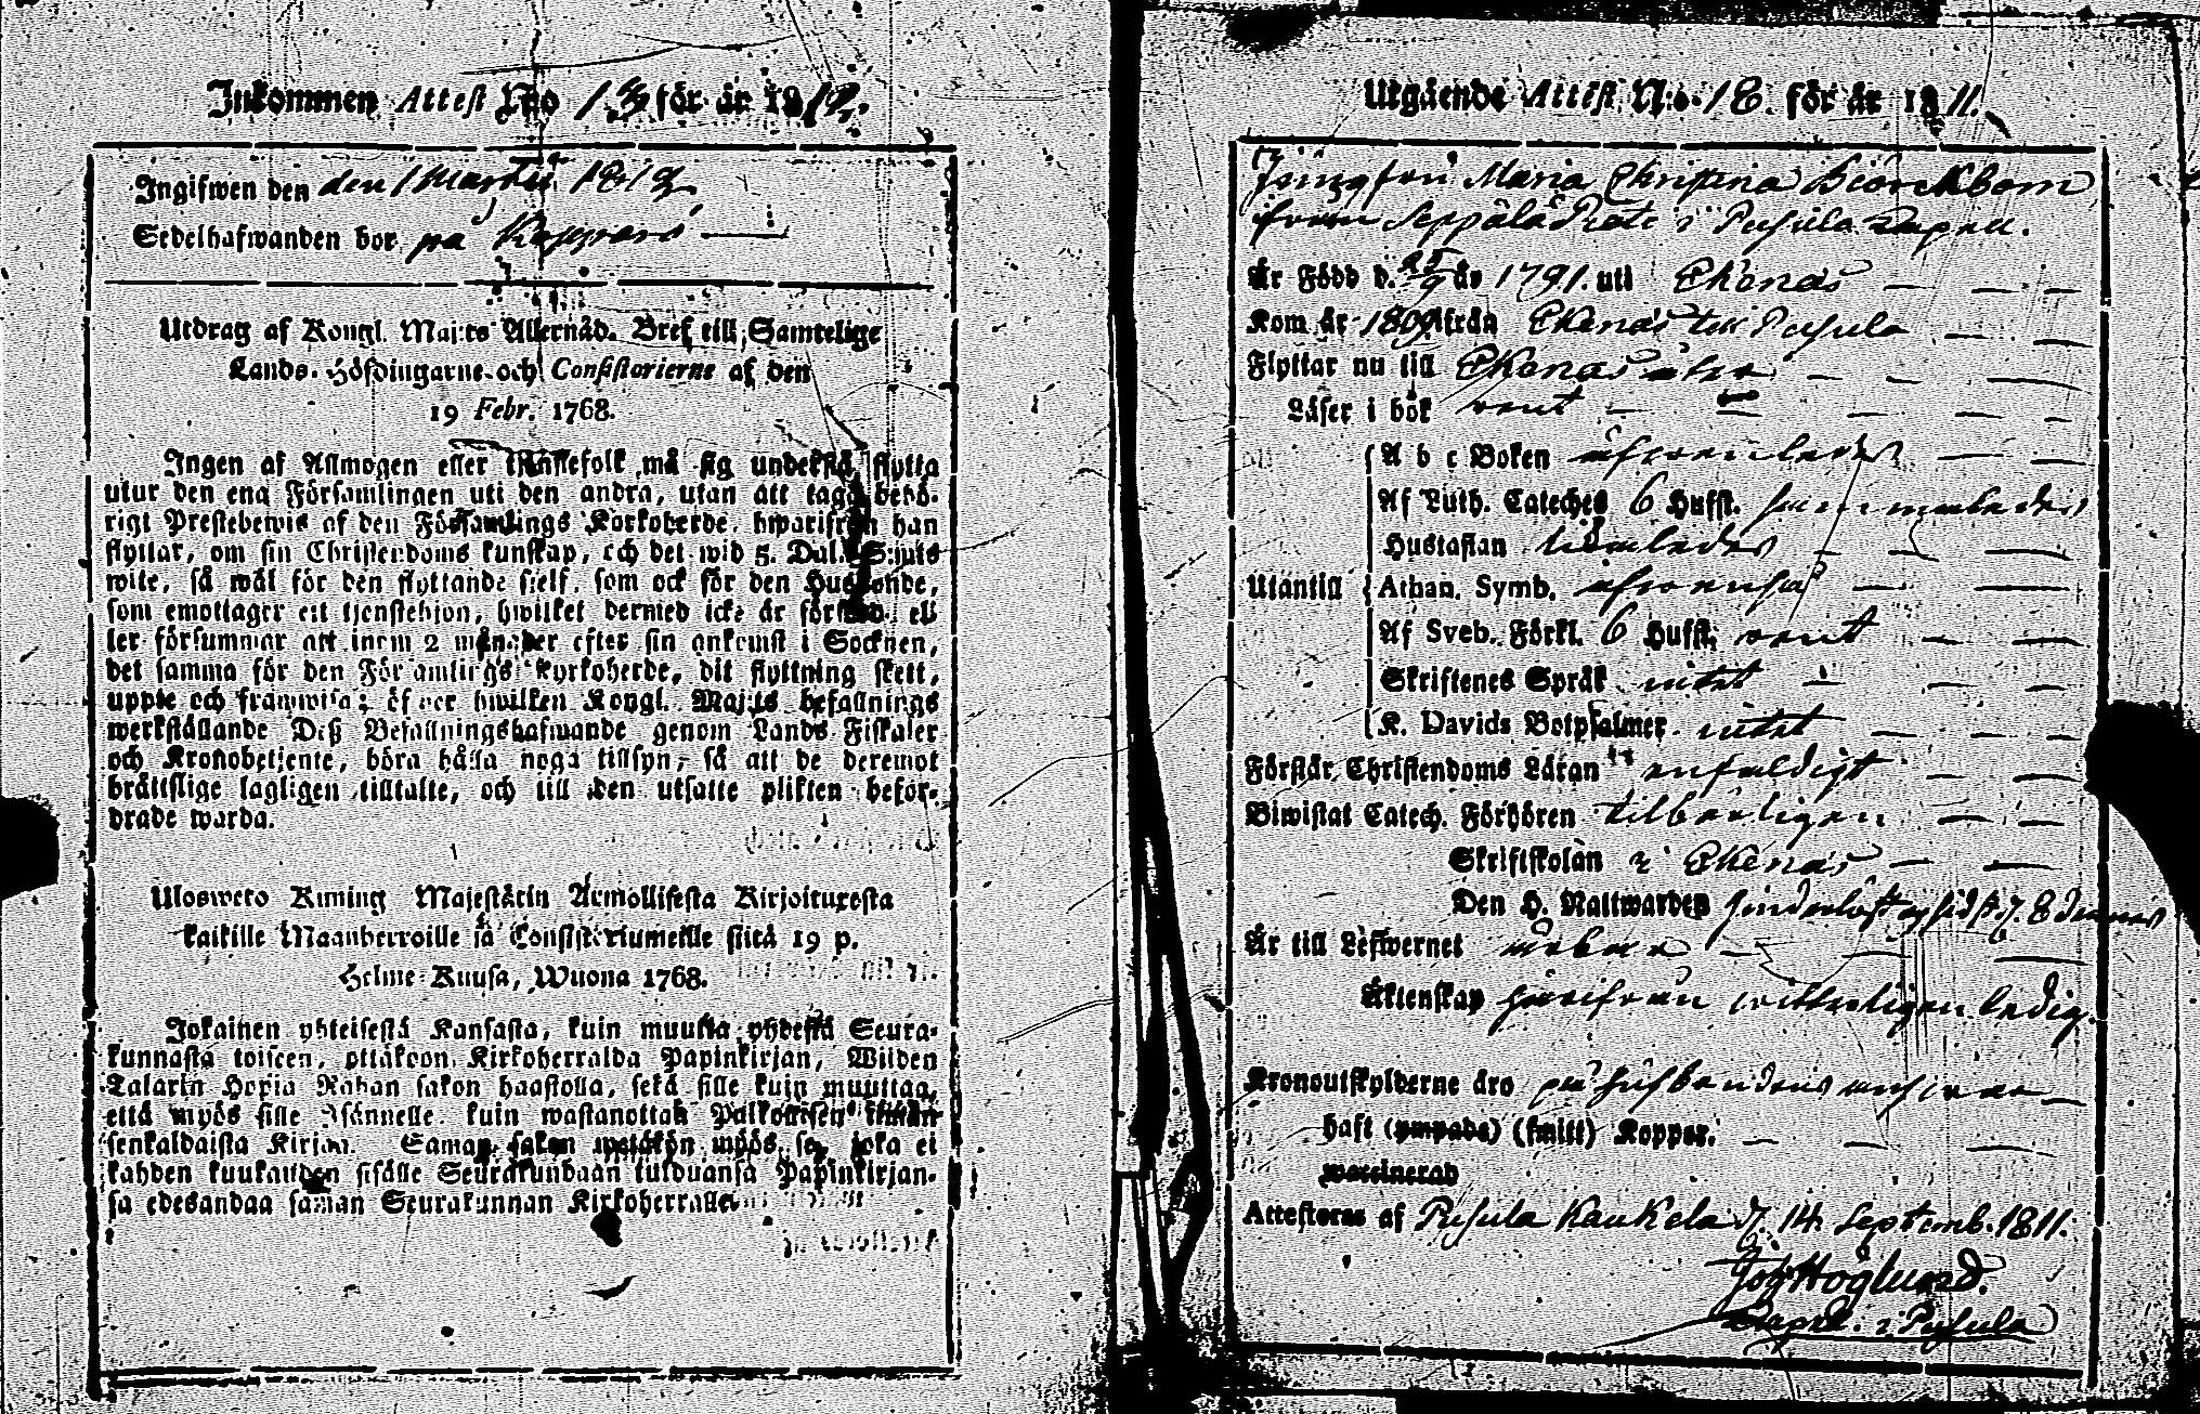 Inkommen Attest N:o 13 för år 1812.
Ingifwen den den 1 Martii 1812
Sedelhafwanden bor på
Utdrag af Kongl. Maj:ts Allernåd. Bref till Samtelige
Lands-Höfdingarne och Consistorierne af den
19 Febr. 1768.
Ingen af Allmogen eller tjenstefolk må sig understå flytta
utur den ena Församlingen uti den andra, utan att taga behö-
rigt Prestebewis af den Församlings Korkoherde, hwarifrån han
flyttar, om sin Christendoms kunskap, och det wid 5. Dal. S:mts
wite, så wäl för den flyttande sjelf, som ock för den Husbonde,
som emottager ett tjenstehjon, hwilket dermed icke är försedd, el-
ler försummar att inom 2 månader efter sin ankomst i Socknen,
det samma för den Församlings Kyrkoherde, dit flyttning skett,
uppte och framwisa; öfwer hwilken Kongl. Maj:ts befallnings
werkställande Deß Befallningshafwande genom Lands-Fiskaler
och Kronobetjente, böra hålla noga tillsyn, så att de deremot
bråttslige lagligen tilltalte, och till den utsatte plikten beför-
drade warda.
Ulosweto Kuning Majestätin Armollisesta Kirjoituxesta
kaikille Maanherroille ja Consistoriumeille siitä 19 p.
Helme-Kuusa, Wuona 1768.
Jokainen yhteisestä Kansasta, kuin muutta yhdestä Seura-
kunnasta toiseen, ottakoon Kirkoherralda Papinkirjan, Wiiden
Talarin Hopia Rahan sakon haastolla, sekä sille kuin muuttaa,
että myös sille Isännelle kuin wastanottak Palkollisen ilman
senkaldaista Kirjan. Saman sakon wetäkön myös se, joka ei
kahden kuukauden sisälle Seurakundaan tulduansa Papinkirjan-
sa edesandaa saman Seurakunnan Kirkoherralle.
Utgående Attest N:o 18. för år 1811.
Maria Christina Björckbom
från Seppälä i Pusula Capell.
Är Född d. 25/9 år 1791. uti Ekenäs
Kom år 1809 från Ekenäs till Pusula
Flyttar nu till Ekenäs åter
Läser i bok rent
A b c Boken
Af Luth. Cateches 6 Hufst.
Hustaflan
Utantill Athan. Symb.
Af Sveb. Förkl. 6 Hufst. rent
Skriftenes Språk intet
K. Davids Botpsalmer intet
Förstår Christendoms Läran enfaldigt
Biwistat Catech. Förhören tilbörligen
Skriftskolan i Ekenäs
Den H. Nattwarden
Är till Lefwernet
Äktenskap härifrån witterligen ledig.
Kronoutskylderne äro på husbondens answar
haft (ympade) (smitt) Koppor.
waccinerad
Attesteras af Pusula Kaukela d. 14 Septemb. 1811.
Joh Höglund.
Capel. i Pusula